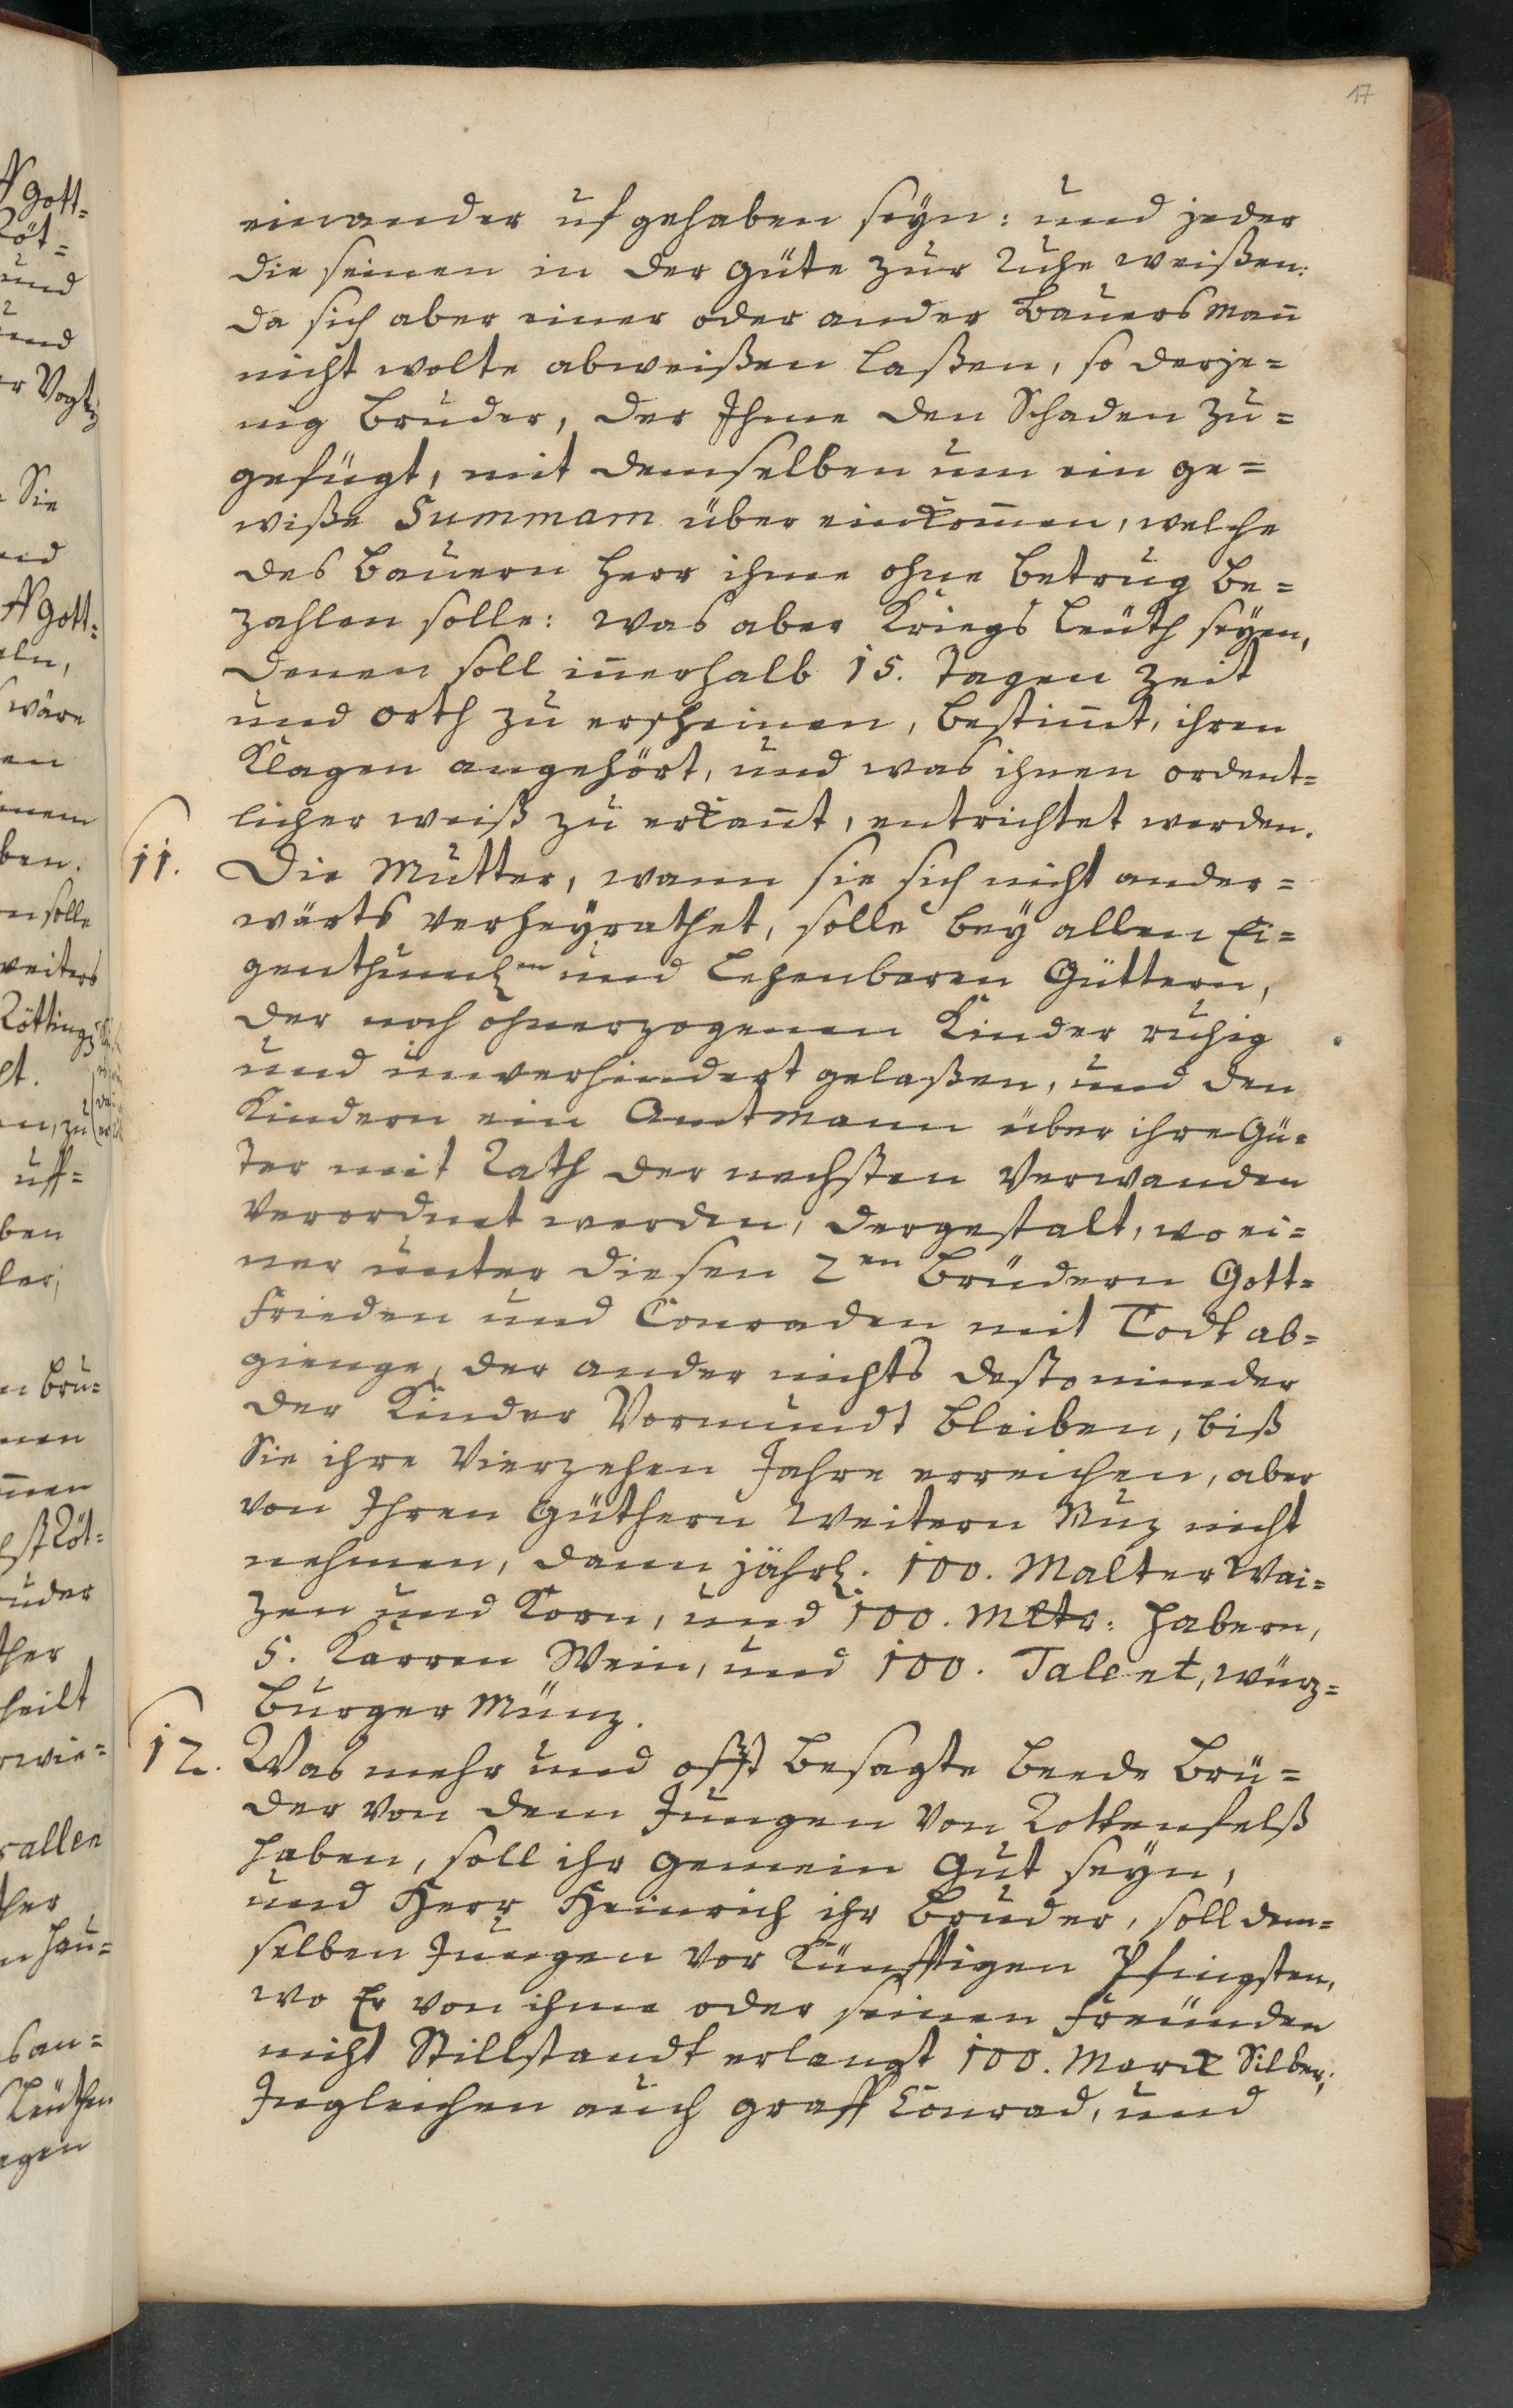 17
einander ufgehaben seÿn: und jeder
die seinen in der güte zur Ruhe weißen:
da sich aber einer oder ander Bauersmañ
nicht wolte abweißen laßen, so derje=
nig Bruder, der Ihme den Schaden zu=
gefügt, mit demselben um ein ge=
wiße Summam über einkom̃en, welche
des Bauern Herr ihme ohne betrug be=
zahlen solle: was aber Kriegs Leüth seÿen,
denen soll iñerhalb 15. Tagen Zeit
und orth zu erscheinen, bestim̃t, ihren
Klagen angehört, und was ihnen ordent=
licher weiß zu erkañt, entrichtet werden.
11. Die Mutter, wann sie sich nicht ander=
wärts verheÿrathet, solle beÿ allen Ei=
genthuml:n und Lehenbaren Güttern,
der noch ohnerzogenen Kinder ruhig
und unverhindert gelaßen, und den
Kindern ein Amtmann über ihre Gü=
ter mit Rath der nechsten Verwanden
verordnet werden, dergestalt, wo ei=
ner unter diesen 2en Brüdern Gott=
frieden und Conraden mit Todt ab=
gienge, der ander nichts desto minder
der Kinder Vormundt bleiben, biß
Sie ihre Vierzehen Jahre erreichen, aber
von Ihren Güthern Weitern Nuz nicht
nehmen, dann jährl. 100. Malter Wai=
zen und Korn, und 100. Mltr: Habern,
5. Karren Wein, und 100. Talent, Würz=
burger Münz.
12. Was mehr und offt besagte beede Brü=
der von dem Jungen von Rottenfelß
haben, soll ihr gemein Gut seÿn,
und Herr Heinrich ihr Bruder, soll dem=
selben Jungen vor Künfftigen Pfingsten,
wo Er von ihme oder seinen Freünden
nicht Stillstandt erlangt 100. Marck Silber;
Ingleichen auch graff Conrad, und